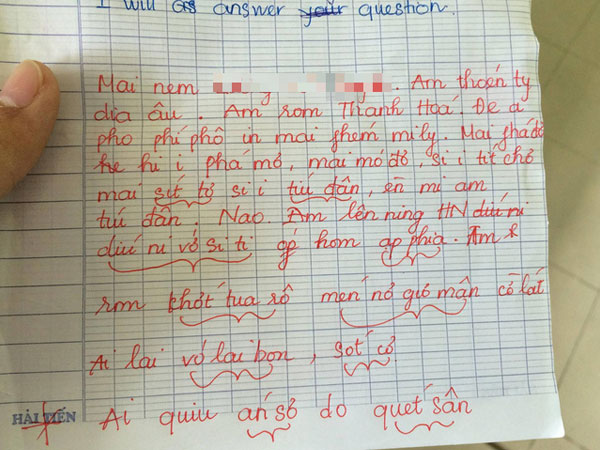 I will as answer your question.
Mai nem . Am thoén ty
dia âu . Am rom Thanh Hoá. Đe a
pho phí phô in mai phem mi ly. Mai phá đò
he hi i phá mó, mai mó đò, si i tít chò
mai sít tò si i tiú đân, èn mi am
tiú đân . Nao. Am lên ning HN diu ni
diu ni vó si ti óp hom ap phia. Am
rom khót tua rô men nó giò mân cô lát
Ai lai vó lai bon, sót cò
Ai quiu án sò do quét sân
HẢI TIẾN